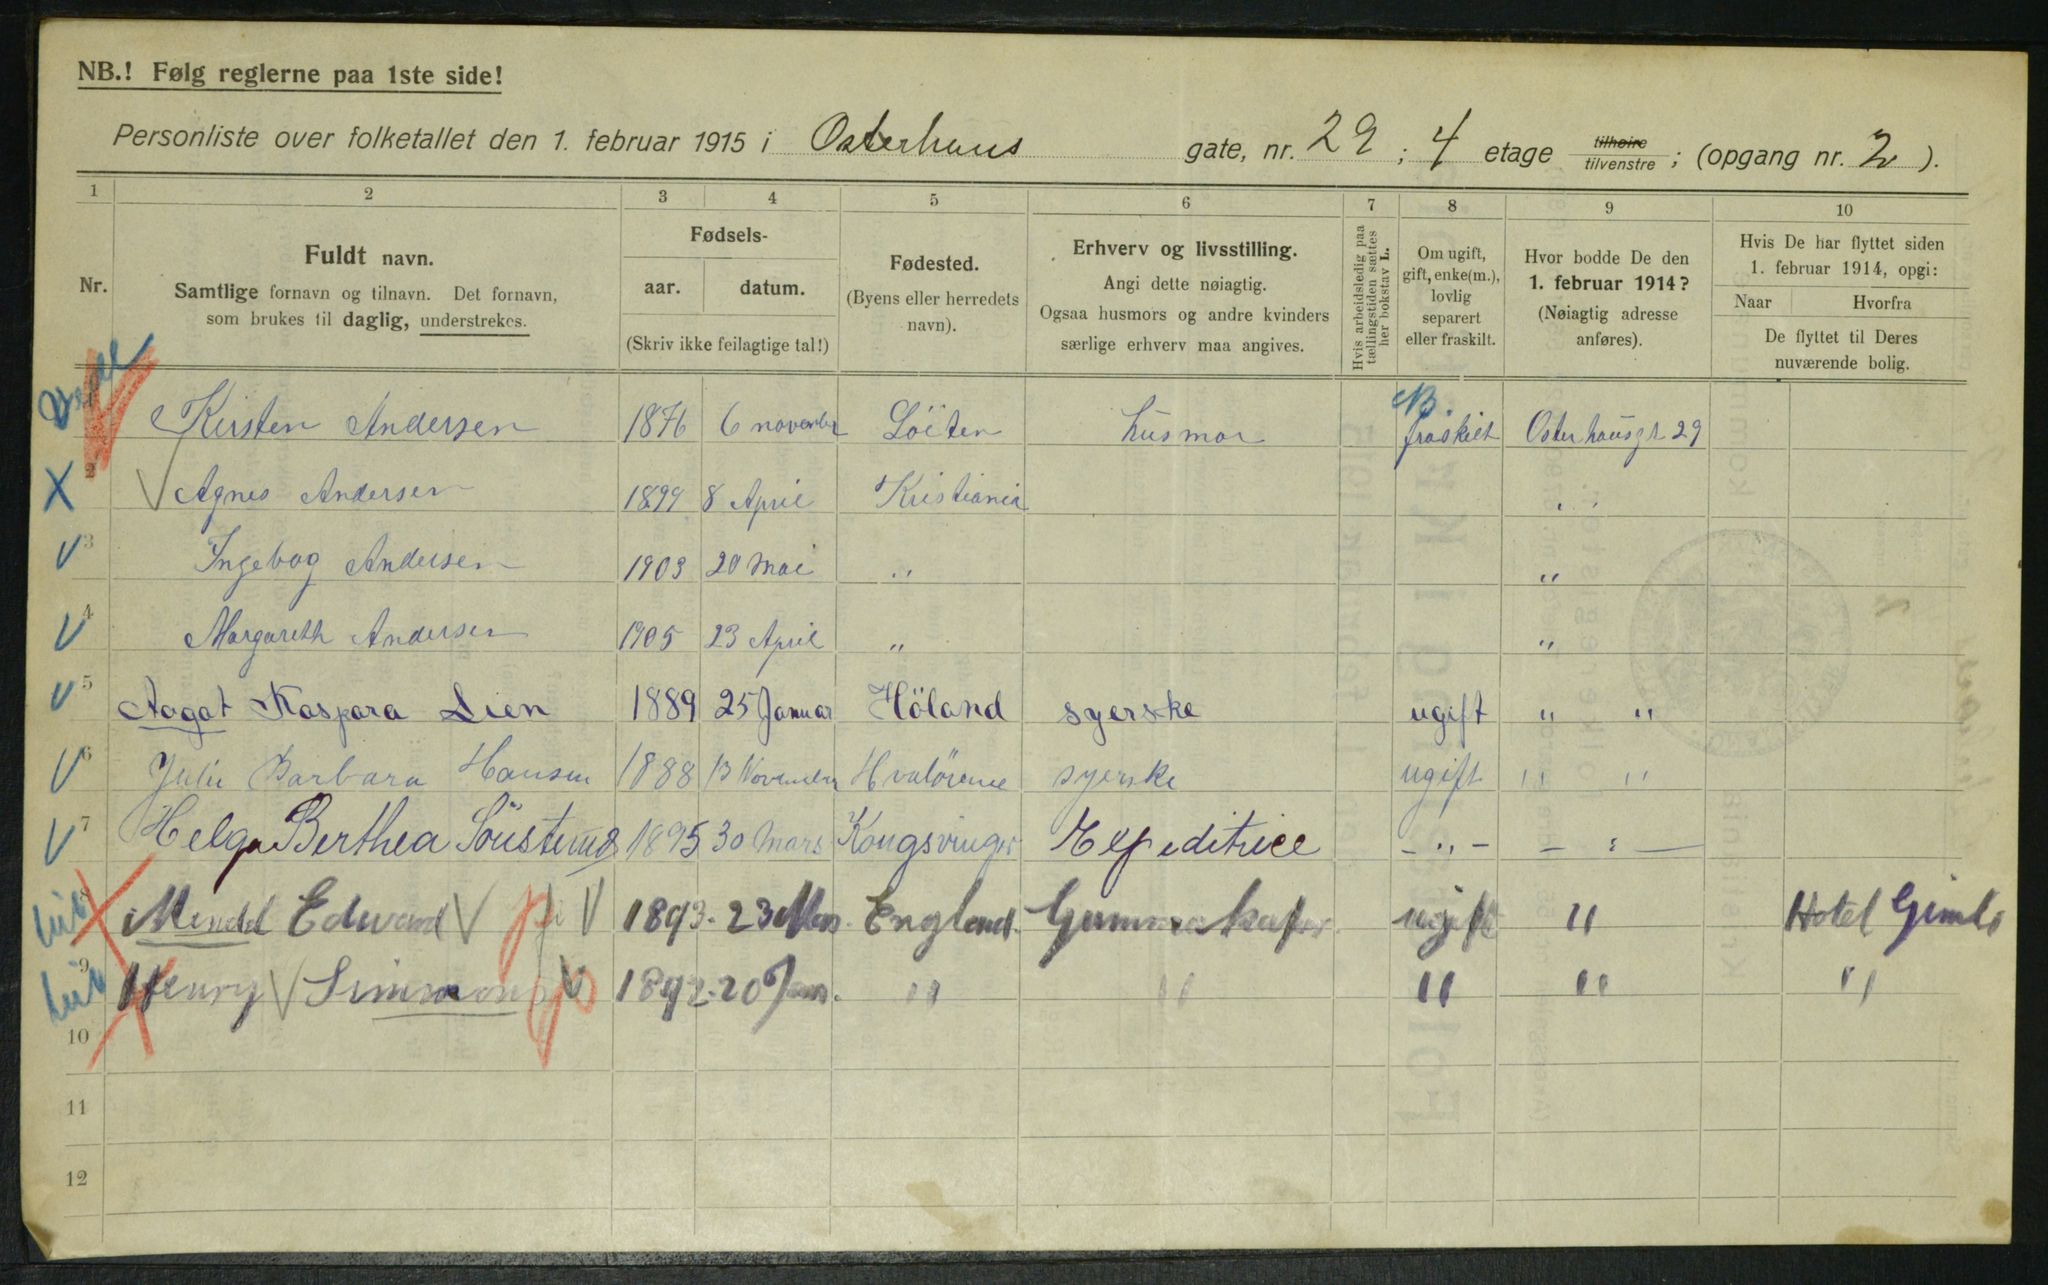 NB.! Følg reglerne paa 1ste side!
Personliste over folketallet den 1. februar 1915 i Osterhaus gate, nr. 29 ; 4 etage tilhøire tilvenstre ; (opgang nr. 2 ).
1 2 3 4 5 6 7 8 9 10
Nr.
Fuldt navn.
Samtlige fornavn og tilnavn. Det fornavn,
som brukes til daglig, understrekes.
Fødsels-
aar. datum.
(Skriv ikke feilagtige tal!)
Fødested.
(Byens eller herredets
navn).
Erhverv og livsstilling.
Angi dette nøiagtig.
Ogsaa husmors og andre kvinders
særlige erhverv maa angives.
Hvis arbeidsledig paa
tællingstiden sættes
her bokstav L.
Om ugift,
gift, enke(m.),
lovlig
separert
eller fraskilt.
Hvor bodde De den
1. februar 1914?
(Nøiagtig adresse
anføres).
Hvis De har flyttet siden
1. februar 1914, opgi:
Naar Hvorfra
De flyttet til Deres
nuværende bolig.
Kirsten Andersen 1876 6 november Löiten husmor fraskilt Osterhausgt 29
2 Agnes Andersen 1899 8 April Kristiania " "
3 Ingebog Andersen 1903 20 Mai " "
4 Margareth Andersen 1905 23 April " "
5 Aagat Kaspara Lien 1889 25 Januar Höland syerske ugift " "
6 Julie Barbara Hansen 1888 13 November Hvalöerne syerske ugift " "
7 Helga Berthea 1895 30 Mars Kongsvinger Expeditrice - " - - " -
8 Edward 1893. 23 Mars. England. ugift " Hotel Gimle
9 Henry Simmons 1892. 20 Jan. " " " " "
10
11
12